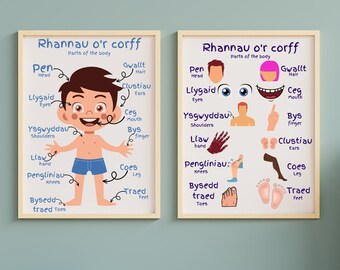 Rhannau o'r corff
Parts of the body
Pen
Head
Gwallt
Hair
Llygaid
Eyes
Clustiau
Ears
Ceg
Mouth
Ysgwyddau
Shoulders
Bys
finger
Llaw
hand
Coes
Leg
Pengliniau
Knees
Bysedd
traed
Toes
Traed
Feet
Rhannau o'r corff
Parts of the body
Pen
Head
Gwallt
Hair
Llygaid
Eyes
Ceg
Mouth
Ysgwyddau
Shoulders
Bys
Finger
Llaw
Hand
Clustiau
Ears
Pengliniau
Knees
Coes
Leg
Bysedd
traed
Toes
Traed
Feet